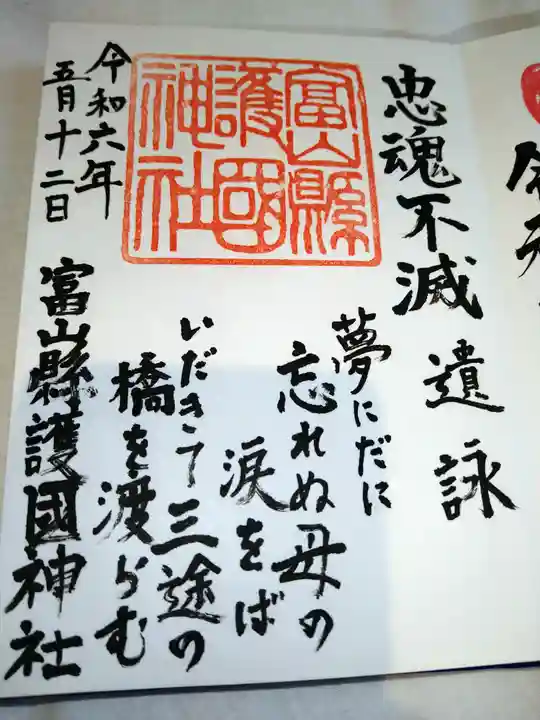 忠魂不滅
遺詠
夢にだに
忘れぬ母の
涙をば
いだきて三途の
橋を渡らむ
富山縣護國神社
富山縣
護國
神社
令和六年
五月十二日